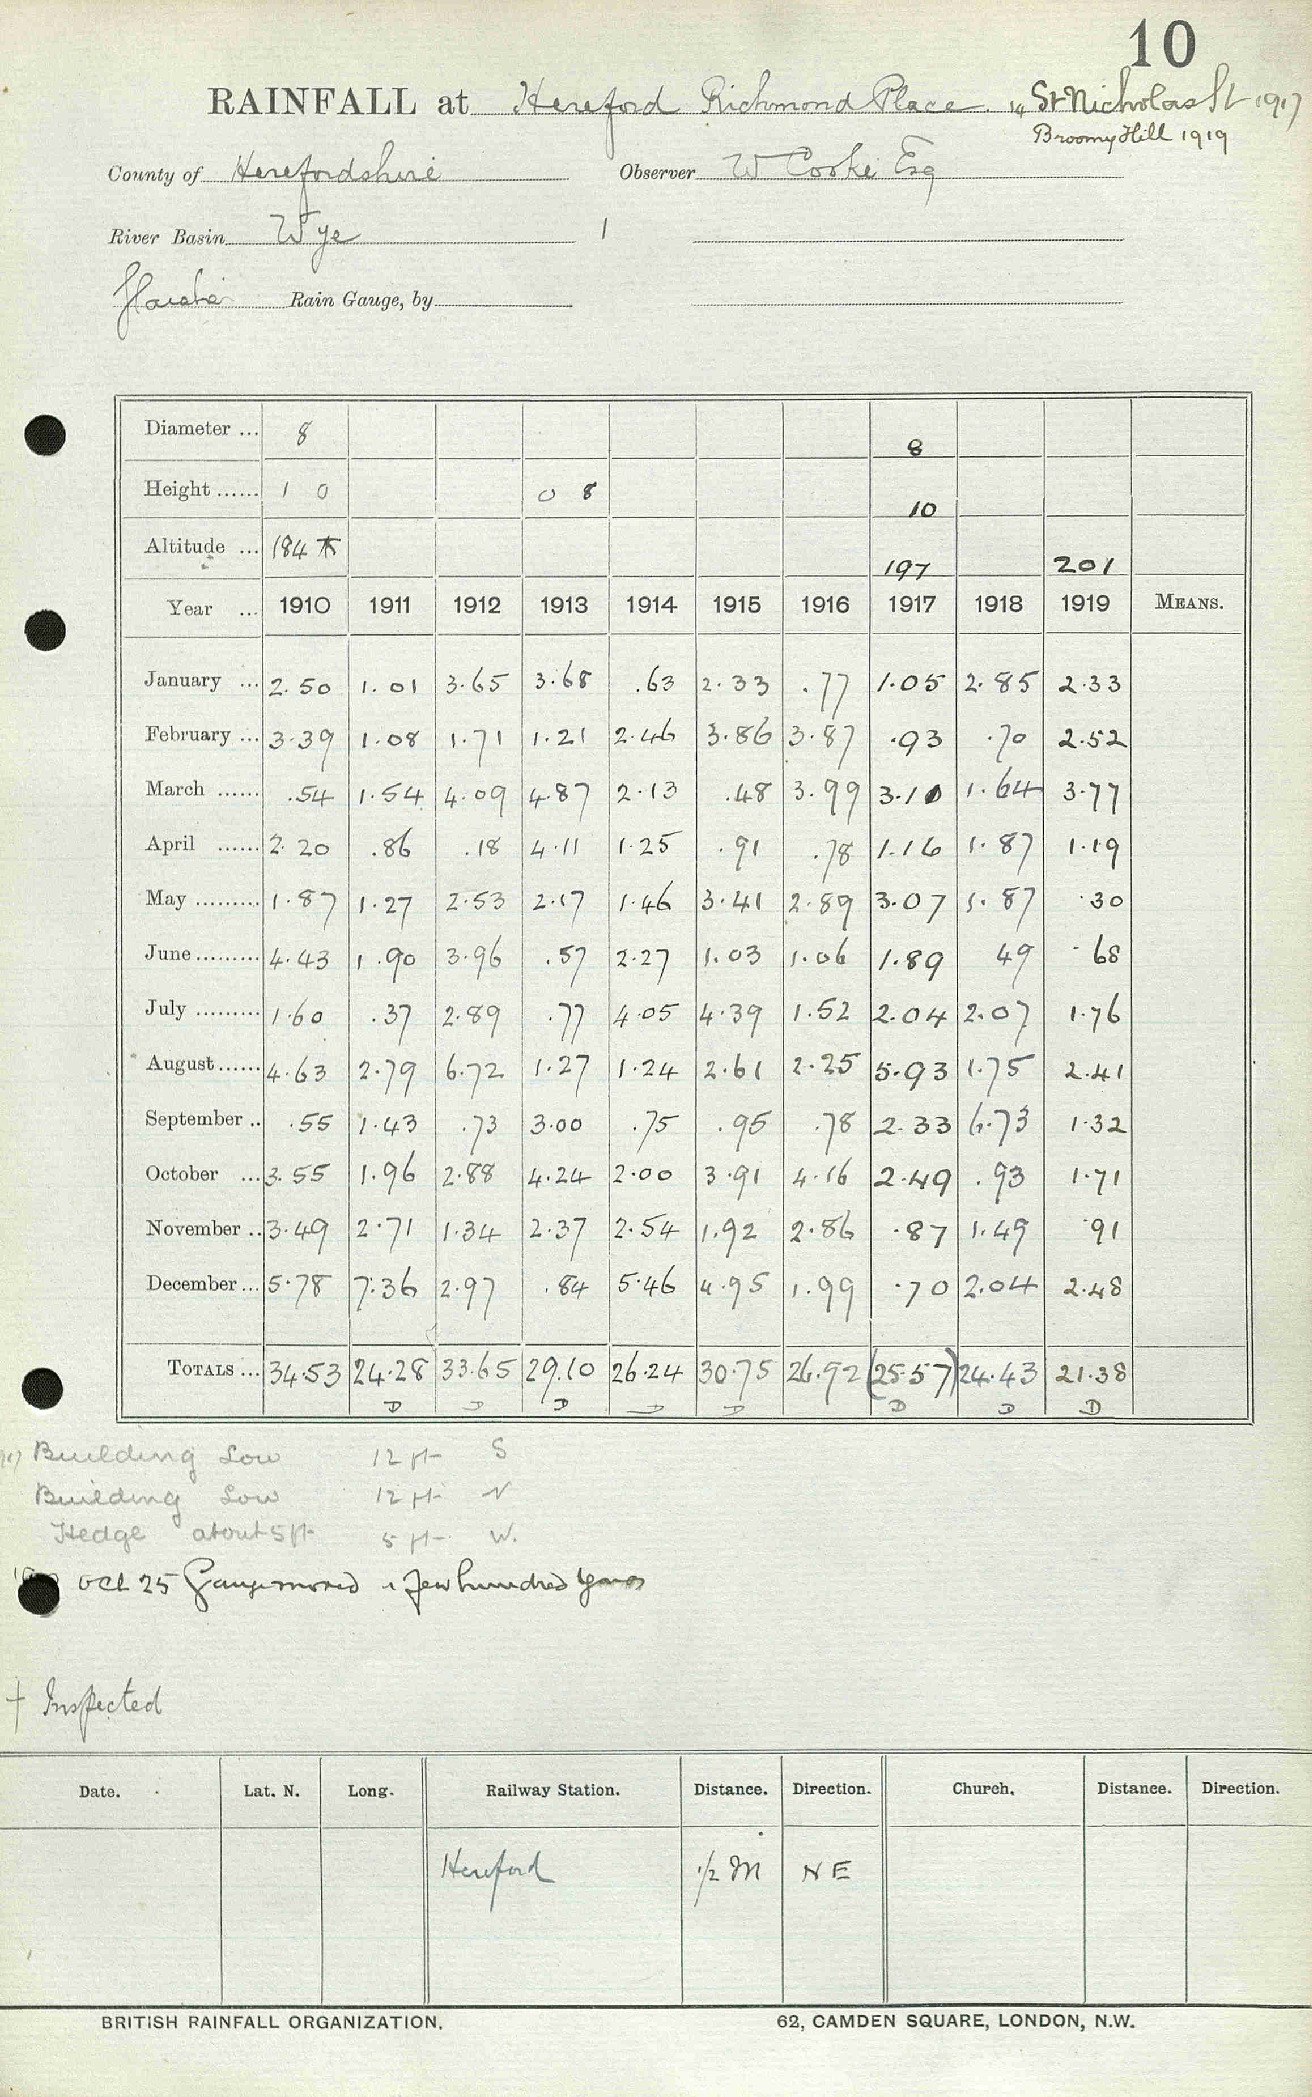 10
RAINFALL at Hereford Richmond Place. 14 St Nicholas St 1917
Broomy Hill 1919
County of Herefordshire Observer W Cooke Esq
River Basin Wye 1
Rain Gauge, by
Diameter ... 8 8
Height ...... 1 0 0 8 10
Altitude ... 184 197 201
Year ... 1910 1911 1912 1913 1914 1915 1916 1917 1918 1919 MEANS.
January ... 2.50 1.01 3.65 3.68 .63 2.33 .77 1.05 2.85 2.33
February ... 3.39 1.08 1.71 1.21 2.46 3.86 3.87 .93 .70 2.52
March ...... .54 1.54 4.09 4.87 2.13 .48 3.99 3.10 1.64 3.77
April ...... 2.20 .86 .18 4.11 1.25 .91 .78 1.16 1.87 1.19
May ......... 1.87 1.27 2.53 2.17 1.46 3.41 2.89 3.07 1.87 .30
June ......... 4.43 1.90 3.96 .57 2.27 1.03 1.06 1.89 49 .68
July ......... 1.60 .37 2.89 .77 4.05 4.39 1.52 2.04 2.07 1.76
August ...... 4.63 2.79 6.72 1.27 1.24 2.61 2.25 5.93 1.75 2.41
September .. .55 1.43 .73 3.00 .75 .95 .78 2.33 6.73 1.32
October ... 3.55 1.96 2.88 4.24 2.00 3.91 4.16 2.49 .93 1.71
November .. 3.49 2.71 1.34 2.37 2.54 1.92 2.86 .87 1.49 .91
December ... 5.78 7.36 2.97 .84 5.46 4.95 1.99 .70 2.04 2.48
TOTALS ... 34.53 24.28 33.65 29.10 26.24 30.75 26.92 (25.57) 24.43 21.38
D D D D D D D
Building Low 12 ft S
Building Low 12 ft N
Hedge about 5 ft 5 ft W.
Oct 25 Gauge moved a few hundred yards
† Inspected
Date. Lat. N. Long. Railway Station. Distance. Direction. Church. Distance. Direction.
Hereford 1/2 M NE
BRITISH RAINFALL ORGANIZATION. 62, CAMDEN SQUARE, LONDON, N.W.